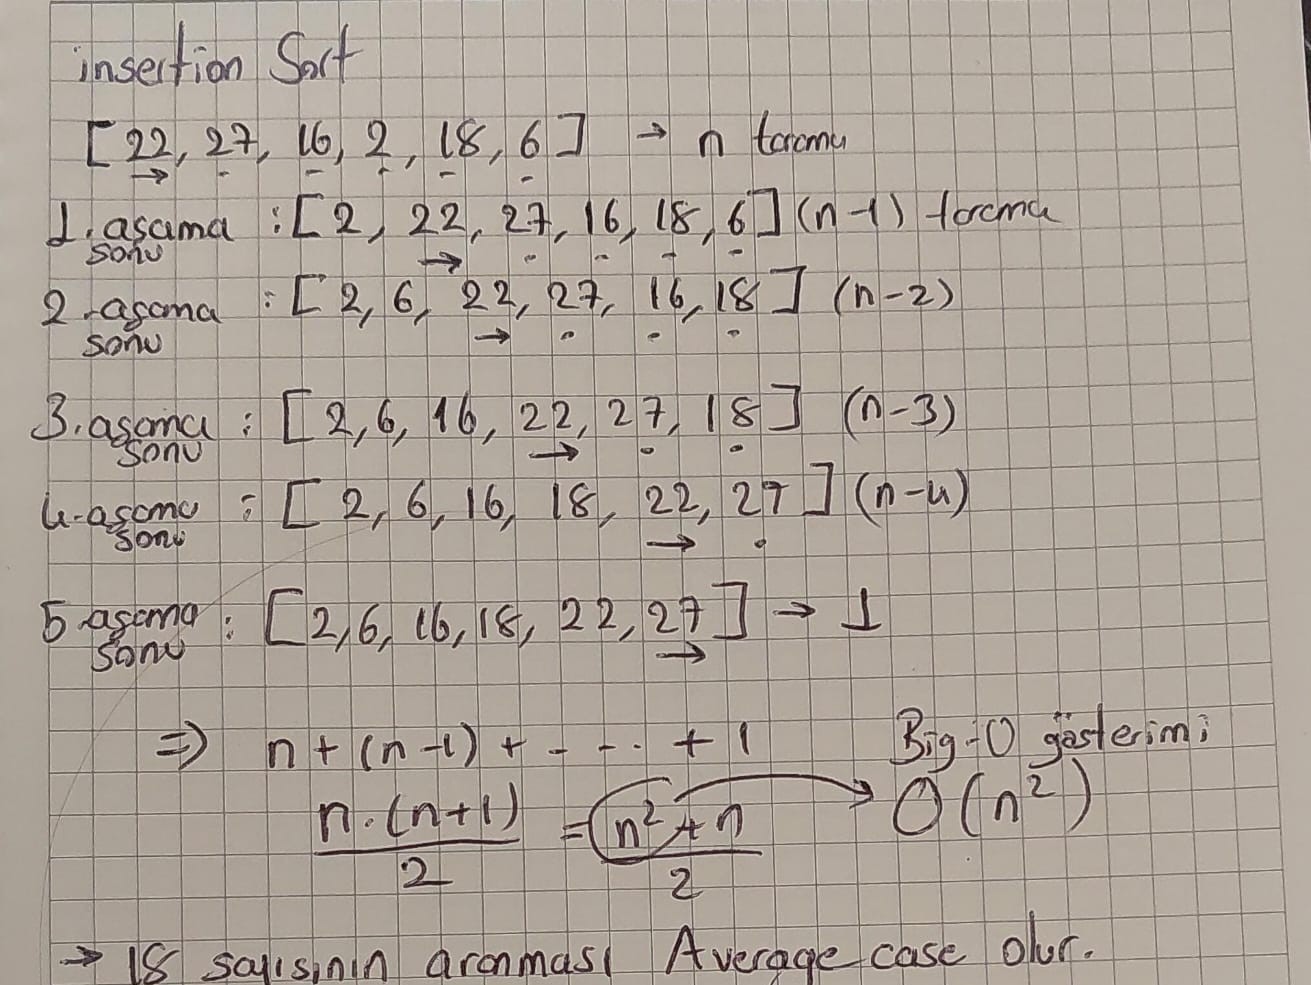 insertion Sort
[22, 27, 16, 2, 18, 6] → n tarama
1. aşama sonu : [2, 22, 27, 16, 18, 6] (n-1) tarama
2. aşama sonu : [2, 6, 22, 27, 16, 18] (n-2)
3. aşama sonu : [2, 6, 16, 22, 27, 18] (n-3)
4. aşama sonu : [2, 6, 16, 18, 22, 27] (n-4)
5. aşama sonu : [2, 6, 16, 18, 22, 27] → 1
⇒ n + (n-1) + - - .. + 1
n.(n+1)/2 = n² + n/2
Big-O gösterimi
O(n²)
→ 18 sayısının aranması Average case olur.